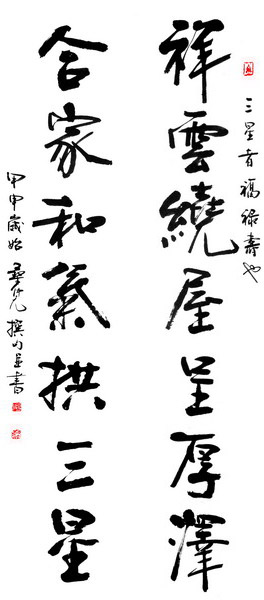 祥雲繞屋呈厚澤
三星者福祿壽也
合家和氣拱三星
甲申歲始尋凭撰句並書